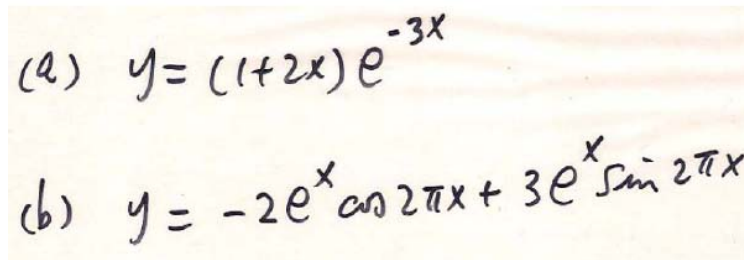 (a) y = (1+2x) e^{-3x}
(b) y = -2e^{x} cos 2πx + 3e^{x} sin 2πx